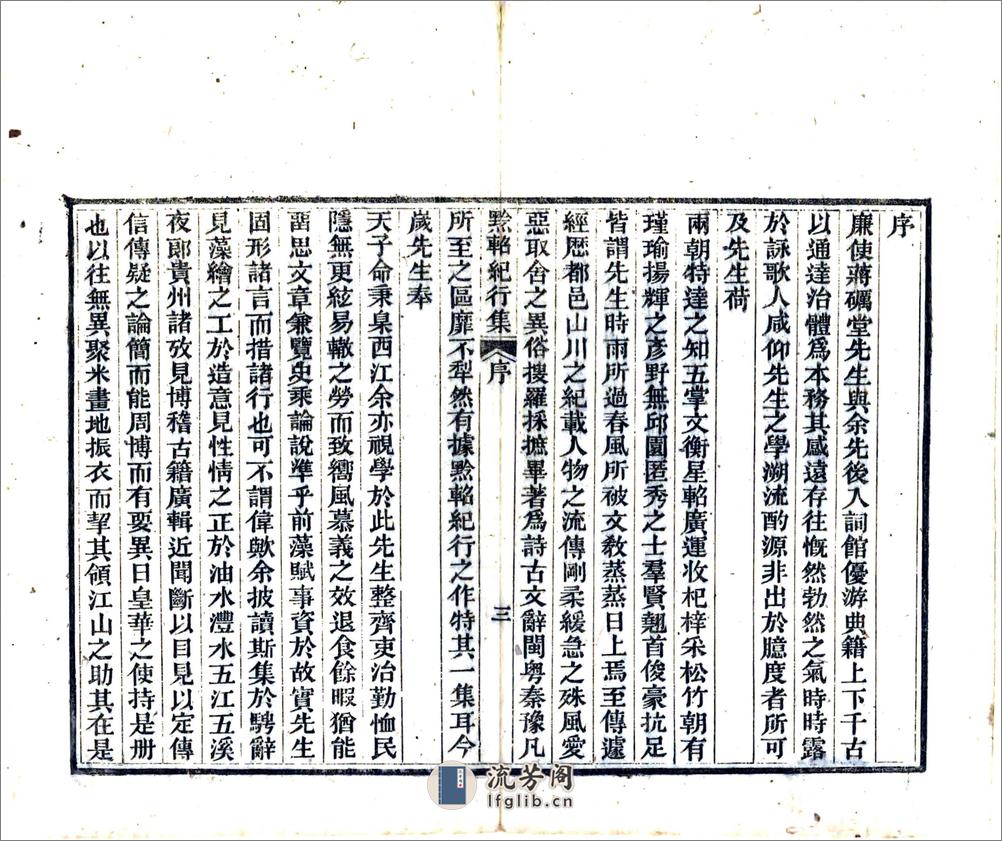 序
廉使蔣礪堂先生與余先後入詞館優游典籍上下千古
以通達治體爲本務其感遠存往慨然勃然之氣時時露
於詠歌人咸仰先生之學溯流酌源非出於臆度者所可
及先生荷
兩朝特達之知五掌文衡星軺廣運收杞梓采松竹朝有
瑾瑜揚輝之彥野無邱園匿秀之士羣賢翹首俊豪抗足
皆謂先生時雨所過春風所被文敎蒸蒸日上焉至傳遽
經歷都邑山川之紀載人物之流傳剛柔緩急之殊風愛
惡取舍之異俗搜羅採摭畢著爲詩古文辭閩粤秦豫凡
黔軺紀行集
序
三
所至之區靡不犁然有據黔軺紀行之作特其一集耳今
歲先生奉
天子命秉臬西江余亦視學於此先生整齊吏治勤恤民
隱無更絃易轍之勞而致嚮風慕義之效退食餘暇猶能
畱思文章兼覽史乘論說準乎前藻賦事資於故實先生
固形諸言而措諸行也可不謂偉歟余披讀斯集於騁辭
見藻繪之工於造意見性情之正於油水灃水五江五溪
夜郎貴州諸攷見博稽古籍廣輯近聞斷以目見以定傳
信傳疑之論簡而能周博而有要異日皇華之使持是册
也以往無異聚米畫地振衣而挈其領江山之助其在是
流芳阁
lfglib.cn